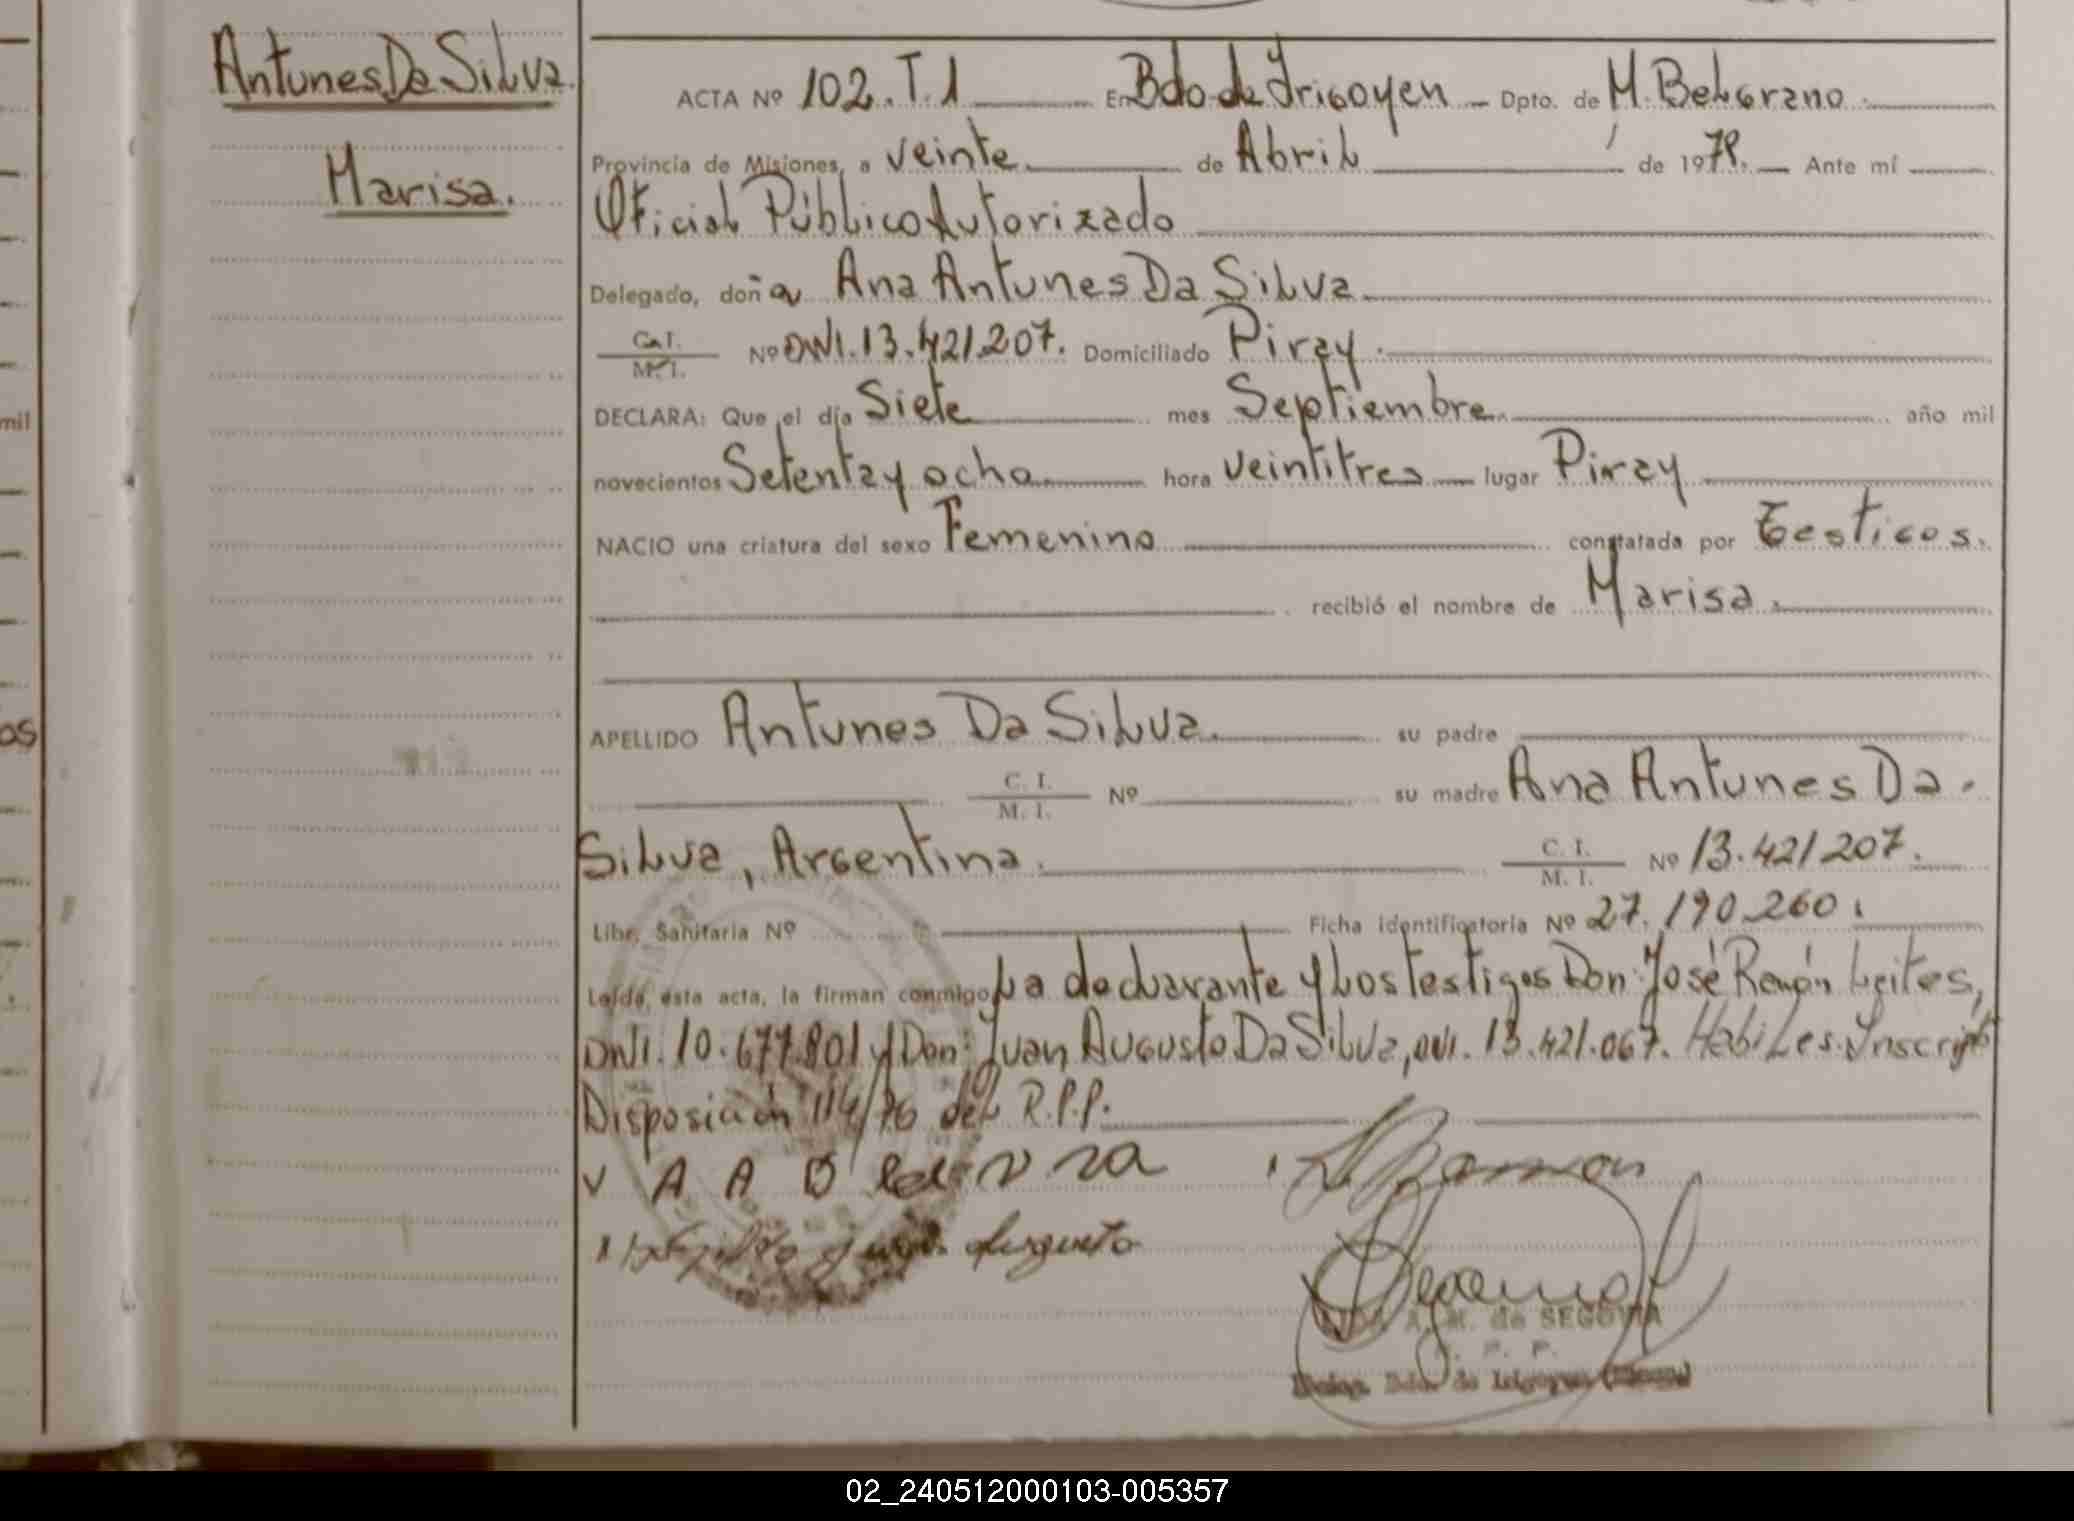 Antunes Da Silva.
Marisa.
mil
os
ACTA Nº 102.T.1 En Bdo de Irigoyen Dpto. de M. Belgrano.
Provincia de Misiones, a veinte de Abril de 1979. Ante mí
Oficial Público Autorizado
Delegado, doña Ana Antunes Da Silva.
C. I.
M. I.
Nº DNI.13.421.207. Domiciliado Piray.
DECLARA: Que el día Siete mes Septiembre. año mil
novecientos Setenta y ocho. hora veintitres lugar Piray
NACIO una criatura del sexo Femenino constatada por Testigos.
recibió el nombre de Marisa.
APELLIDO Antunes Da Silva. su padre
C. I.
M. I.
Nº su madre Ana Antunes Da
Silva, Argentina.
C. I.
M. I.
Nº 13.421207.
Libr. Sanitaria Nº Ficha identificatoria Nº 27.190.260.
Leída, esta acta, la firman conmigo La declarante y los testigos Don: José Ramón Leites,
DNI. 10.677.801 y Don: Juan Augusto Da Silva, DNI. 13.421.067. Habiles. Inscripto
Disposición 114/76 del R.P.P.
A A D
Augusto
A. M. de SEGOVIA
. P. P.
02_240512000103-005357